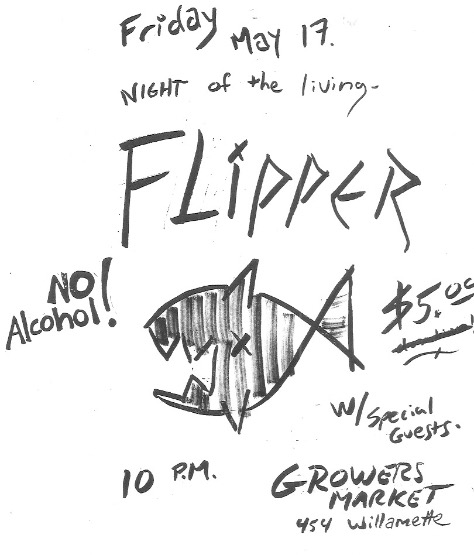 Friday May 17.
NIGHT of the living-
FLiPPER
NO
Alcohol!
$5.00
w/special
Guests.
10 P.M.
GROWERS
MARKET
454 Willamette